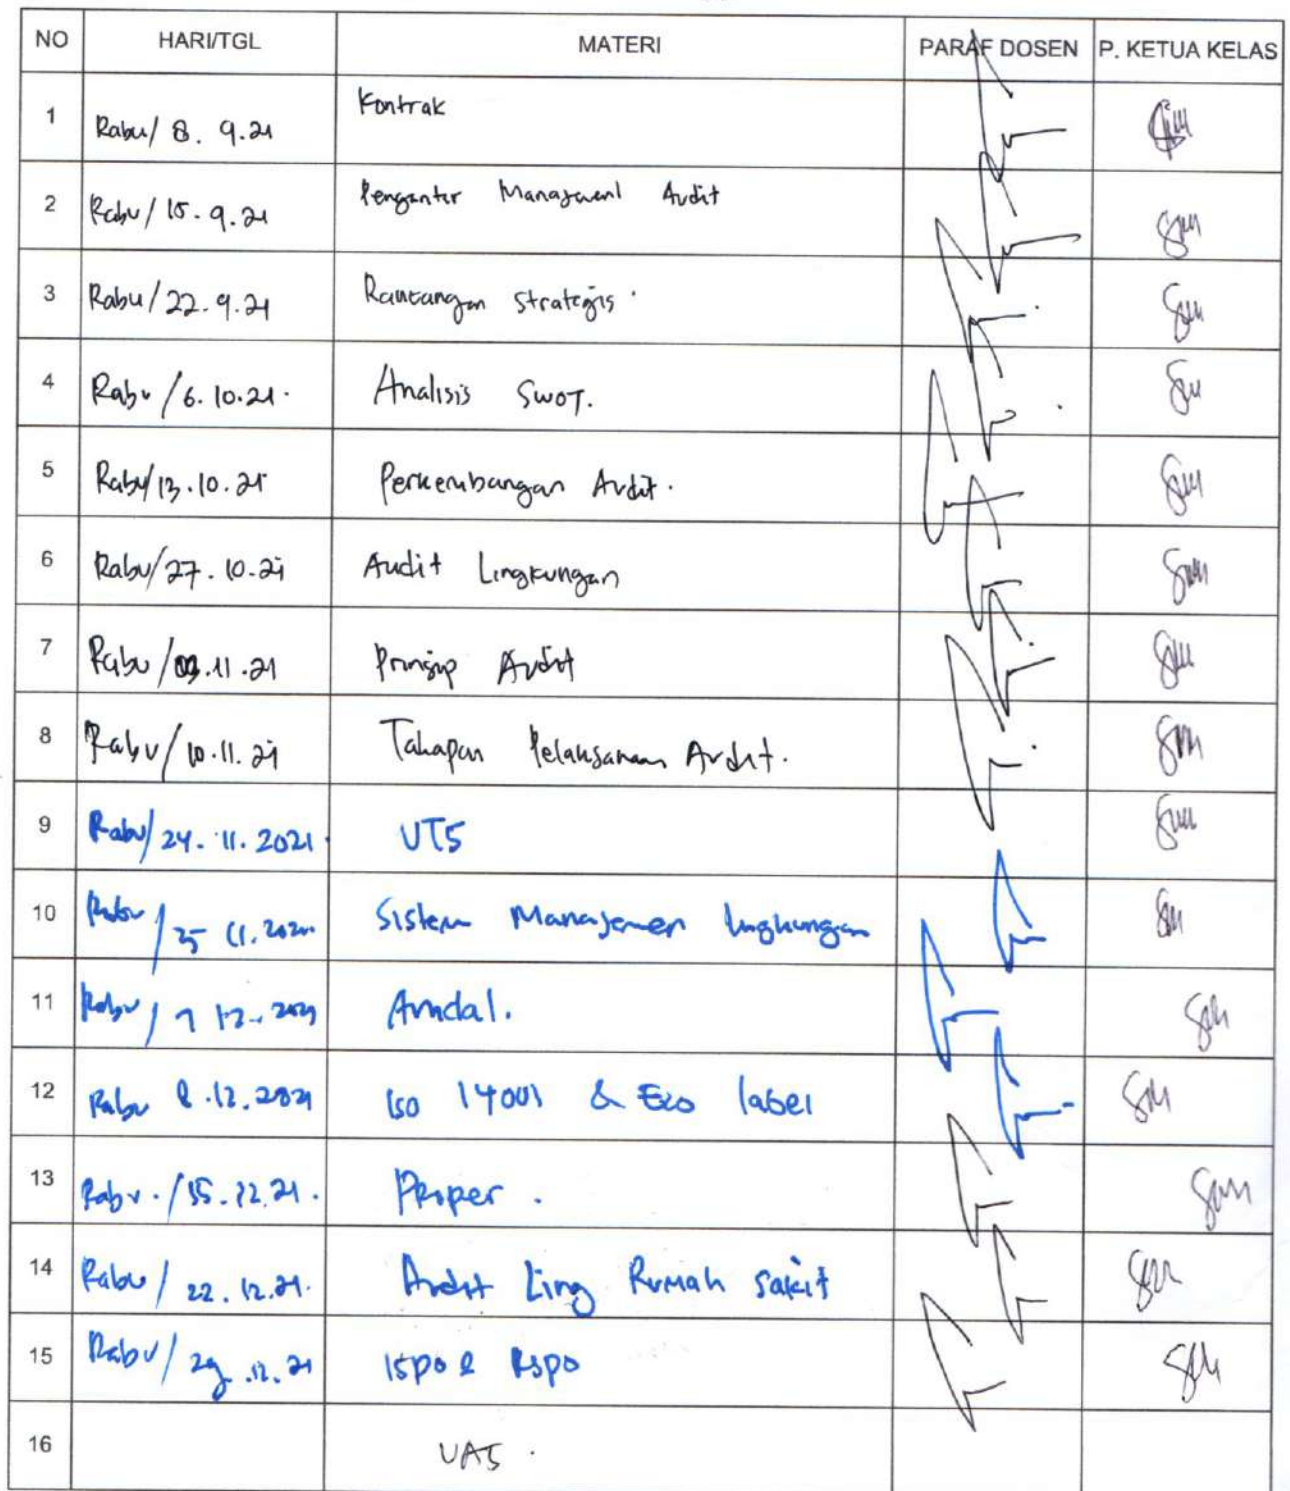 NO HARI/TGL MATERI PARAF DOSEN P. KETUA KELAS
1 Rabu/ 8. 9.21 Kontrak
2 Rabu/ 15. 9.21 Pengantar Manajemen Audit
3 Rabu/22.9.21 Rancangan Strategis.
4 Rabu/6.10.21. Analisis SWOT.
5 Rabu/13.10.21 Perkembangan Audit.
6 Rabu/27.10.21 Audit Lingkungan
7 Rabu/03.11.21 Prinsip Audit
8 Rabu/10.11.21 Tahapan Pelaksanaan Audit.
9 Rabu/24.11.2021. UTS
10 Rabu/25 11.2021 Sistem Manajemen lingkungan
11 Rabu/1 12-2021 Amdal.
12 Rabu 8.12.2021 Iso 14001 & Eco label
13 Rabu./15.12.21. Proper.
14 Rabu/22.12.21. Audit Ling Rumah Sakit
15 Rabu/29.12.21 ISPO & RSPO
16 UAS.